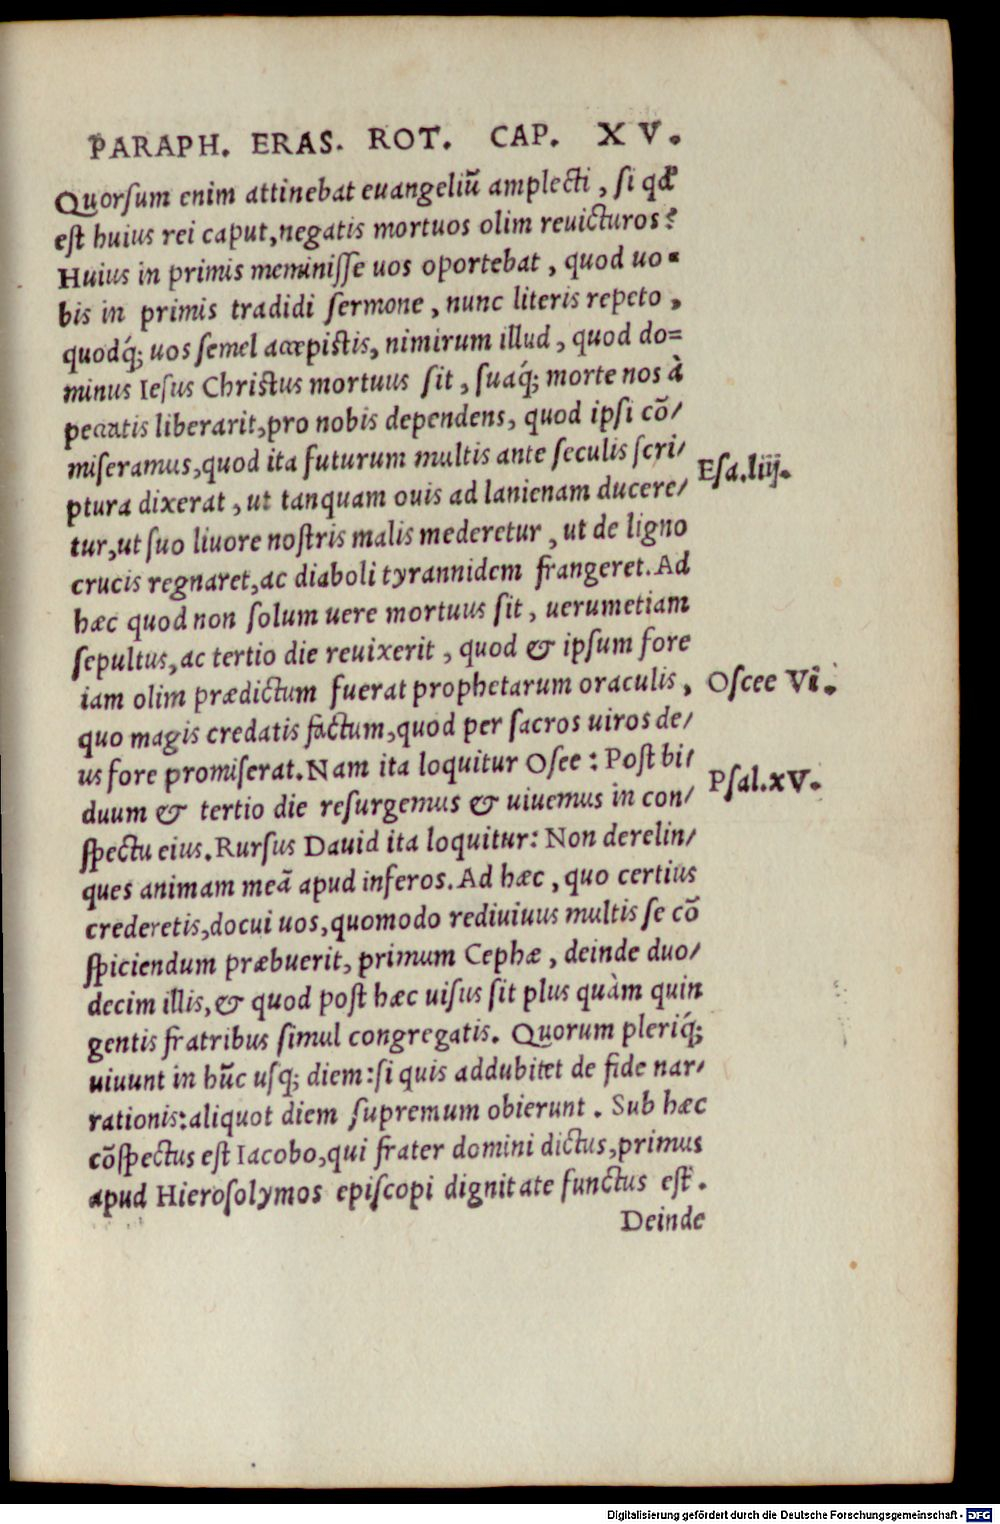 PARAPH. ERAS. ROT. CAP. XV.
Quorſum enim attinebat euangeliū amplecti, ſi qd́
eſt huius rei caput, negatis mortuos olim reuicturos?
Huius in primis meminiſſe uos oportebat, quod uo-
bis in primis tradidi ſermone, nunc literis repeto,
quodq́; uos ſemel accepiſtis, nimirum illud, quod do=
minus Ieſus Chriſtus mortuus ſit, ſuaq́; morte nos à
peccatis liberarit, pro nobis dependens, quod ipſi cō/
miſeramus, quod ita futurum multis ante ſeculis ſcri/
Eſa.liij.
ptura dixerat, ut tanquam ouis ad lanienam ducere/
tur, ut ſuo liuore noſtris malis mederetur, ut de ligno
crucis regnaret, ac diaboli tyrannidem frangeret. Ad
hæc quod non ſolum uere mortuus ſit, uerumetiam
ſepultus, ac tertio die reuixerit, quod & ipſum fore
iam olim prædictum fuerat prophetarum oraculis,
Oſcee Vi.
quo magis credatis factum, quod per ſacros uiros de/
us fore promiſerat. Nam ita loquitur Oſee: Poſt bi/
Pſal.xV.
duum & tertio die reſurgemus & uiuemus in con/
ſpectu eius. Rurſus Dauid ita loquitur: Non derelin/
ques animam meā apud inferos. Ad hæc, quo certius
crederetis, docui uos, quomodo rediuiuus multis ſe cō
ſpiciendum præbuerit, primum Cephæ, deinde duo/
decim illis, & quod poſt hæc uiſus ſit plus quàm quin
gentis fratribus ſimul congregatis. Quorum pleriq́;
uiuunt in hūc uſq; diem: ſi quis addubitet de fide nar/
rationis: aliquot diem ſupremum obierunt. Sub hæc
cōſpectus eſt Iacobo, qui frater domini dictus, primus
apud Hieroſolymos epiſcopi dignitate functus eſt.
Deinde
Digitalisierung gefördert durch die Deutsche Forschungsgemeinschaft - DFG